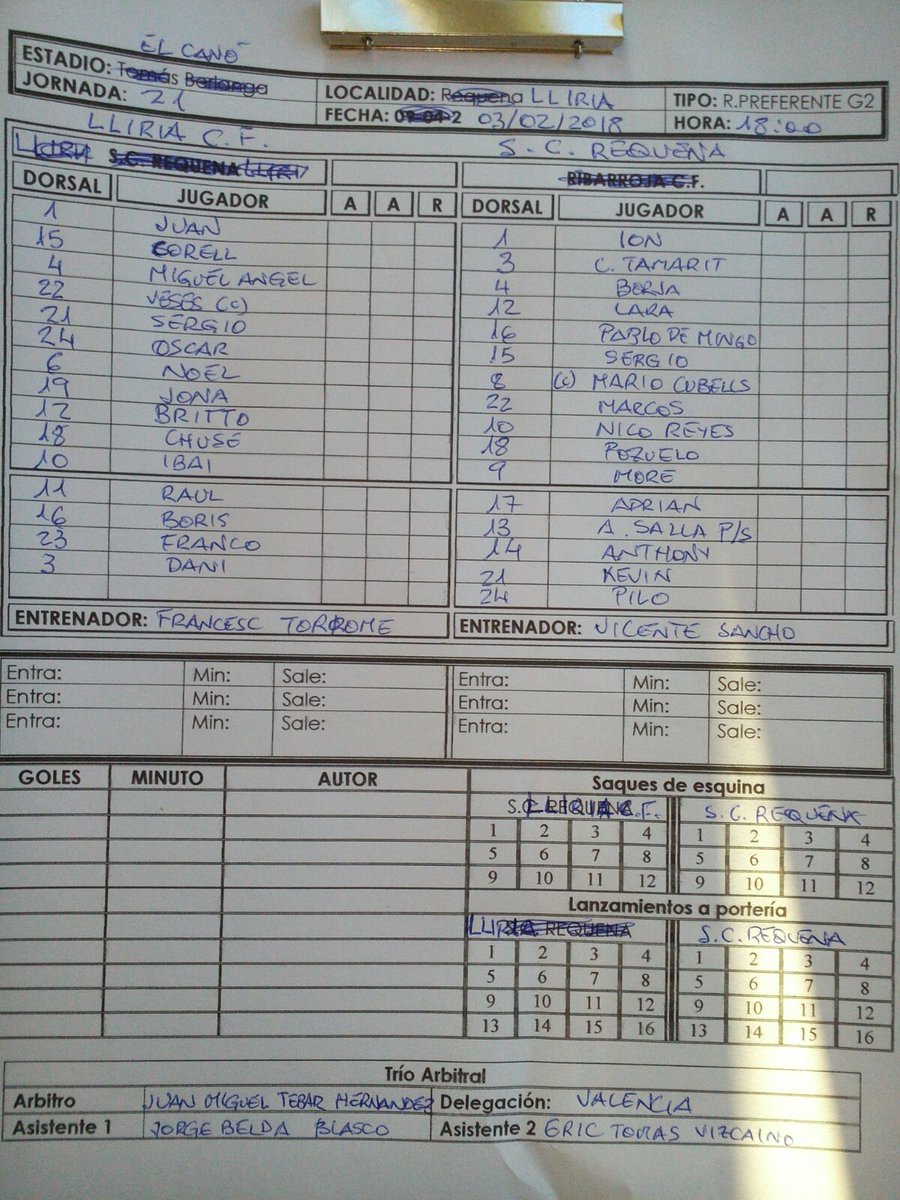 EL CANÓ
ESTADIO: Tomás Berlanga
LOCALIDAD: Requena LLIRIA
TIPO: R.PREFERENTE G2
JORNADA: 21
FECHA: 03/02/2018
HORA: 18:00
LLIRIA C.F.
S. C. REQUENA
LLIRIA S.C. REQUENA LLIRIA
RIBARROJA C.F.
DORSAL JUGADOR A A R DORSAL JUGADOR A A R
1 JUAN 1 ION
15 CORELL 3 C. TAMARIT
4 MIGUEL ANGEL 4 BORJA
22 VESES (C) 12 LARA
21 SERGIO 16 PABLO DE MINGO
24 OSCAR 15 SERGIO
6 NOEL 8 (C) MARIO CUBELLS
19 JONA 22 MARCOS
12 BRITTO 10 NICO REYES
18 CHUSE 18 POZUELO
10 IBAI 9 MORE
11 RAUL 17 ADRIAN
16 BORIS 13 A. SALLA P/S
23 FRANCO 14 ANTHONY
3 DANI 21 KEVIN
24 PILO
ENTRENADOR: FRANCESC TORROME ENTRENADOR: VICENTE SANCHO
Entra: Min: Sale: Entra: Min: Sale:
Entra: Min: Sale: Entra: Min: Sale:
Entra: Min: Sale: Entra: Min: Sale:
GOLES MINUTO AUTOR Saques de esquina
S.C. REQUENA LLIRIA C.F. S. C. REQUENA
1 2 3 4 1 2 3 4
5 6 7 8 5 6 7 8
9 10 11 12 9 10 11 12
Lanzamientos a portería
LLIRIA REQUENA S.C. REQUENA
1 2 3 4 1 2 3 4
5 6 7 8 5 6 7 8
9 10 11 12 9 10 11 12
13 14 15 16 13 14 15 16
Trío Arbitral
Arbitro JUAN MIGUEL TEBAR HERNANDEZ Delegación: VALENCIA
Asistente 1 JORGE BELDA BLASCO Asistente 2 ERIC TOMAS VIZCAINO